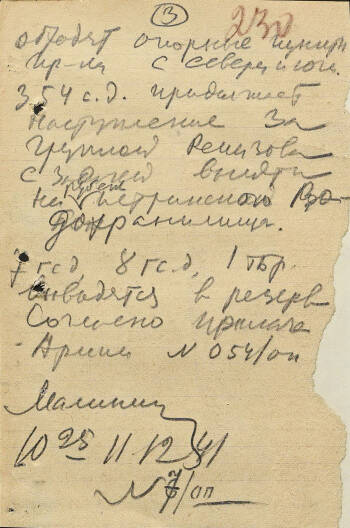 3
230
обходят опорные пункты
пр-ка с севера и юга.
354 с.д. продолжает
наступление за
группой Ремизова
с задачей выйти
на рубеж Истринского Во-
дохранилища.
7 гсд, 8 гсд, 1 тбр.
выводятся в резерв
Согласно приказа
Армии N 054/оп
Малинин
10 25 11.12.41
N 7/оп